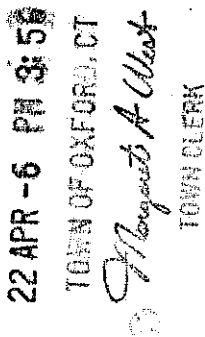 22 APR -6 PM 3:56
TOWN OF OXFORD, CT
Margaret A West
TOWN CLERK